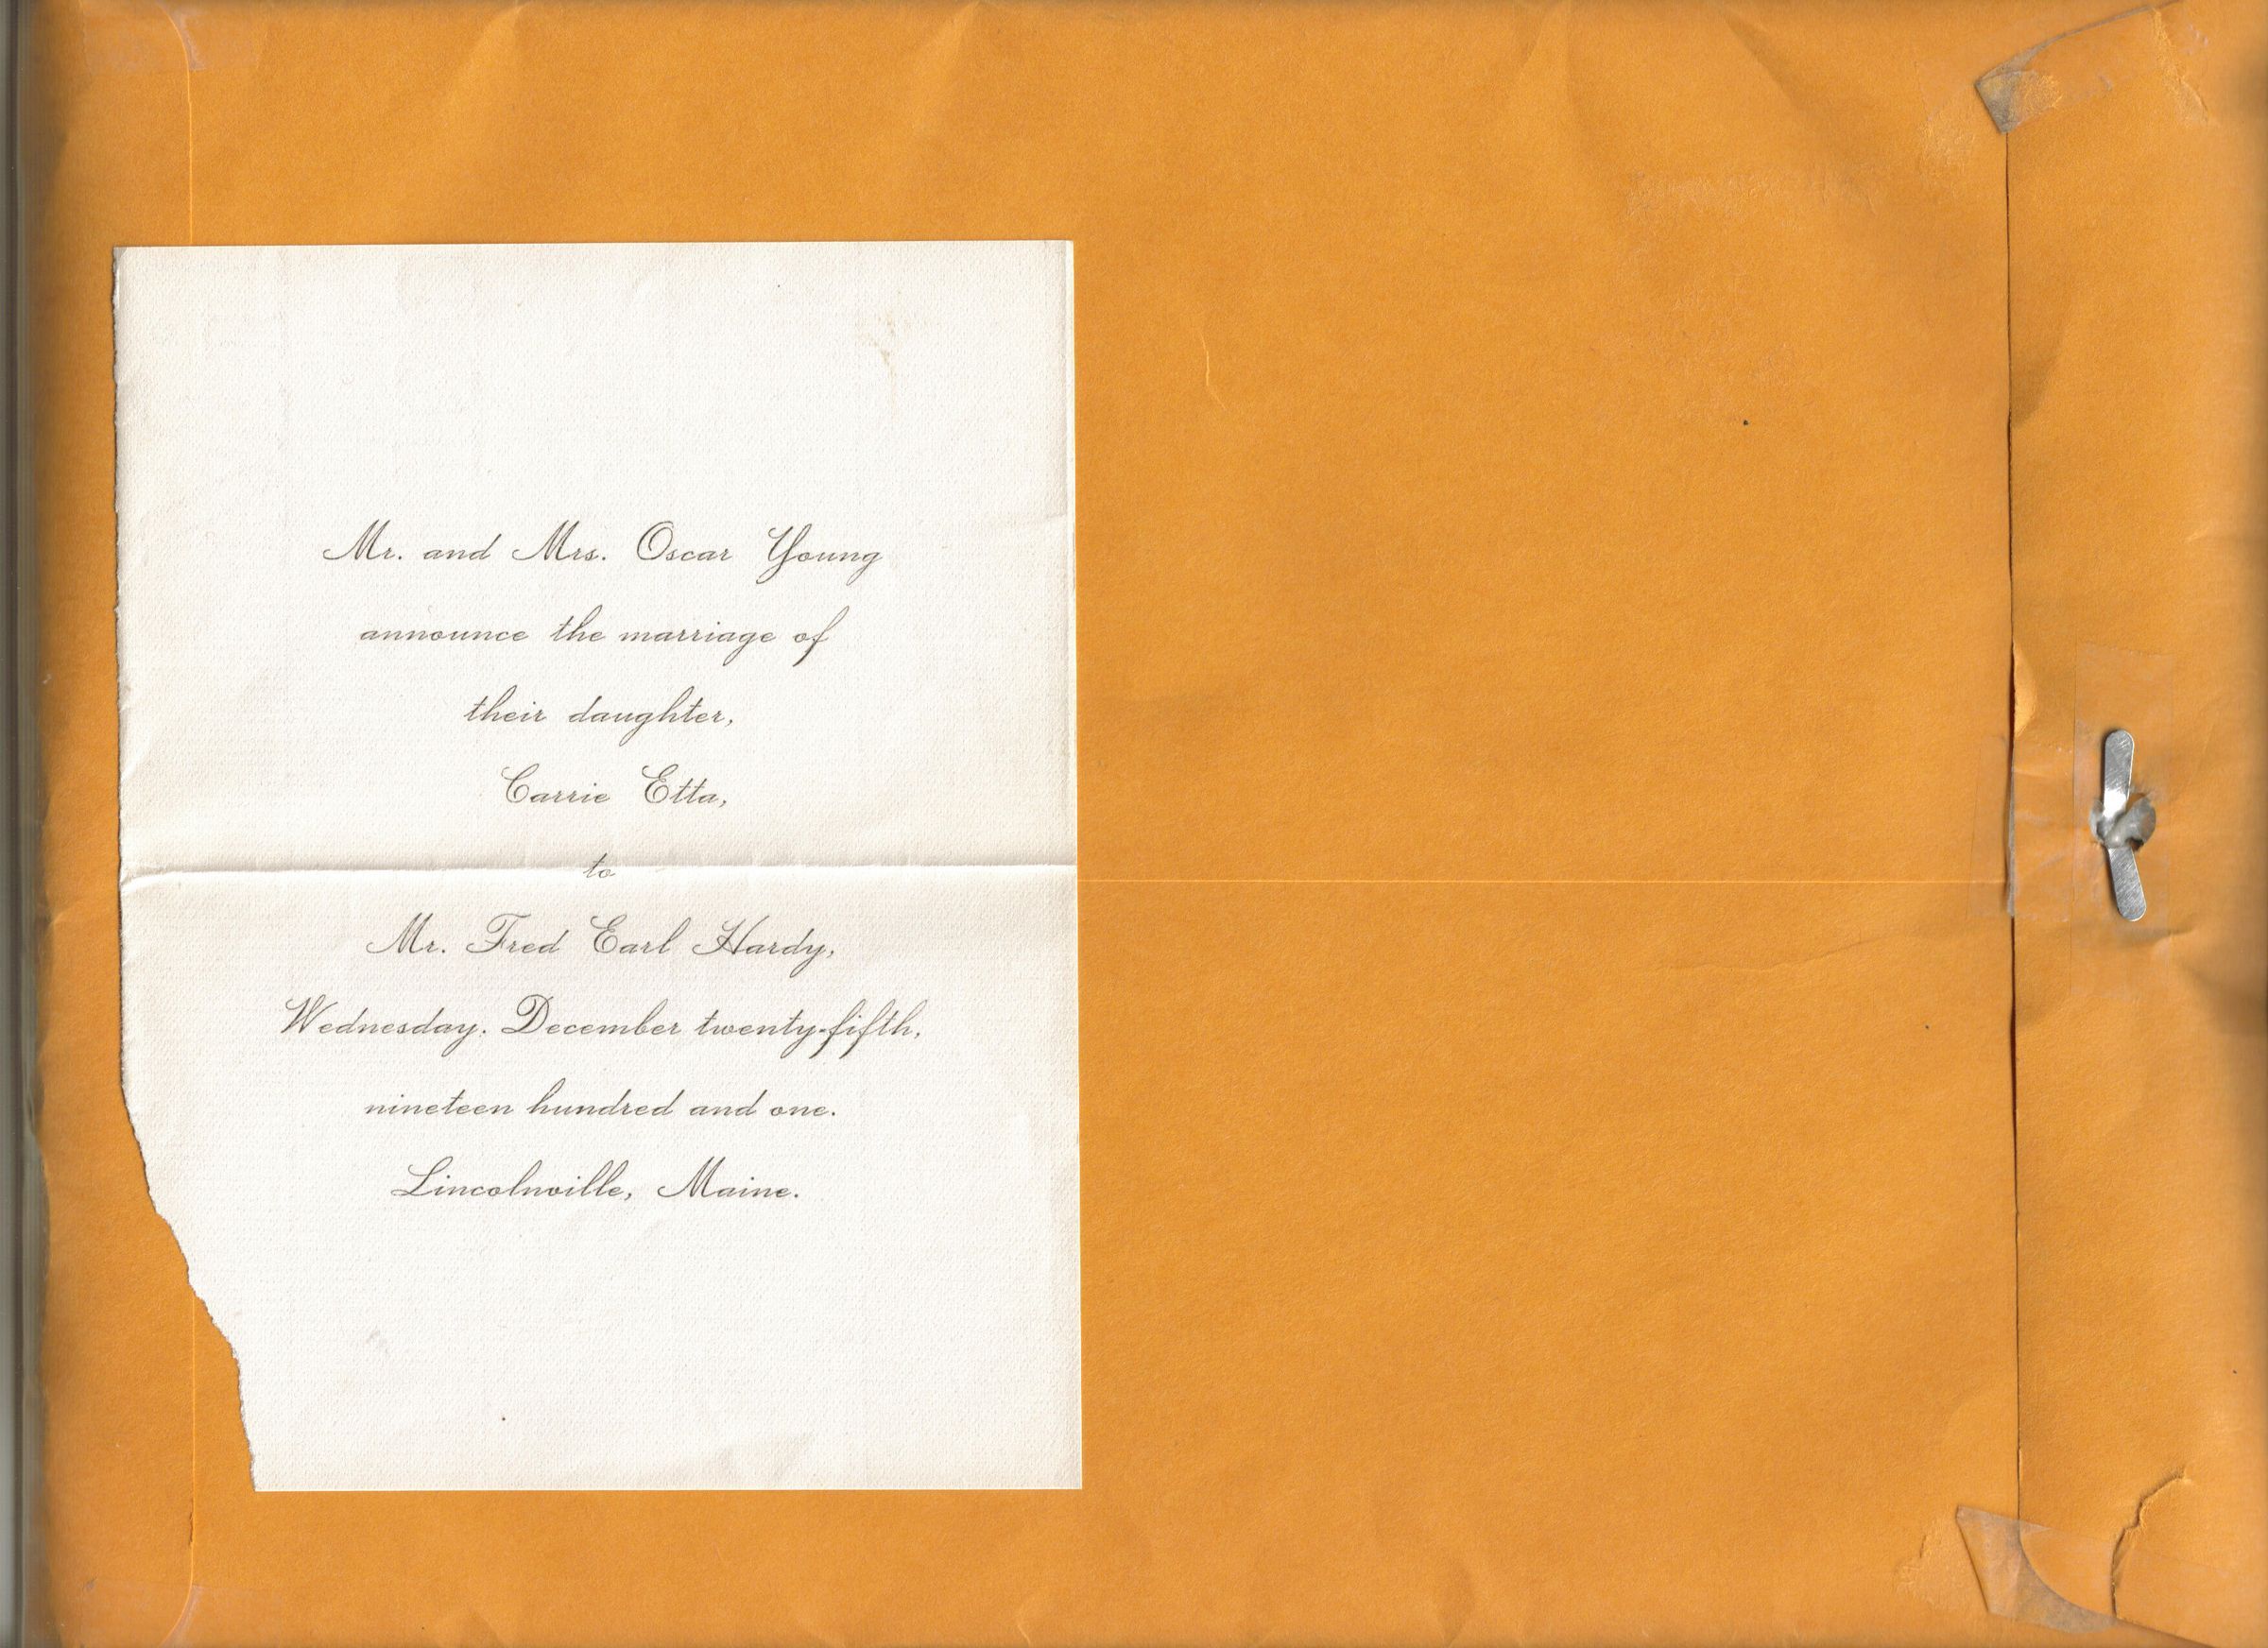 Mr. and Mrs. Oscar Young
announce the marriage of
their daughter,
Carrie Etta,
to
Mr. Fred Earl Hardy,
Wednesday, December twenty-fifth,
nineteen hundred and one.
Lincolnville, Maine.